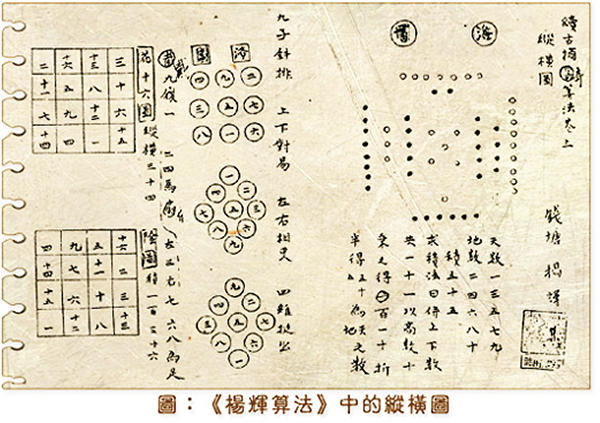 續古摘奇算法卷上
縱橫圖
錢塘 楊輝
天數一三五七九
地數二四六八十
積五十五
求積法曰併上下數
共一十一以高數十
乘之得百一十折
半得五十五為天地之數
九子斜排 上下對易 左右相更 四維挺出
洛
四 九 二
三 五 七
八 一 六
一
四 二
七 五 三
八 六
九
九
四 二
三 五 七
八 六
一
戴九履一 二四為肩 左三右七 六八為足
花十六圖 縱橫三十四
二 十六 十三 三
十一 五 八 十
七 九 十二 六
十四 四 一 十五
陰圖 積一百三十六
四 九 五 十六
十四 七 十一 二
十五 六 十 三
一 十二 八 十三
圖：《楊輝算法》中的縱橫圖